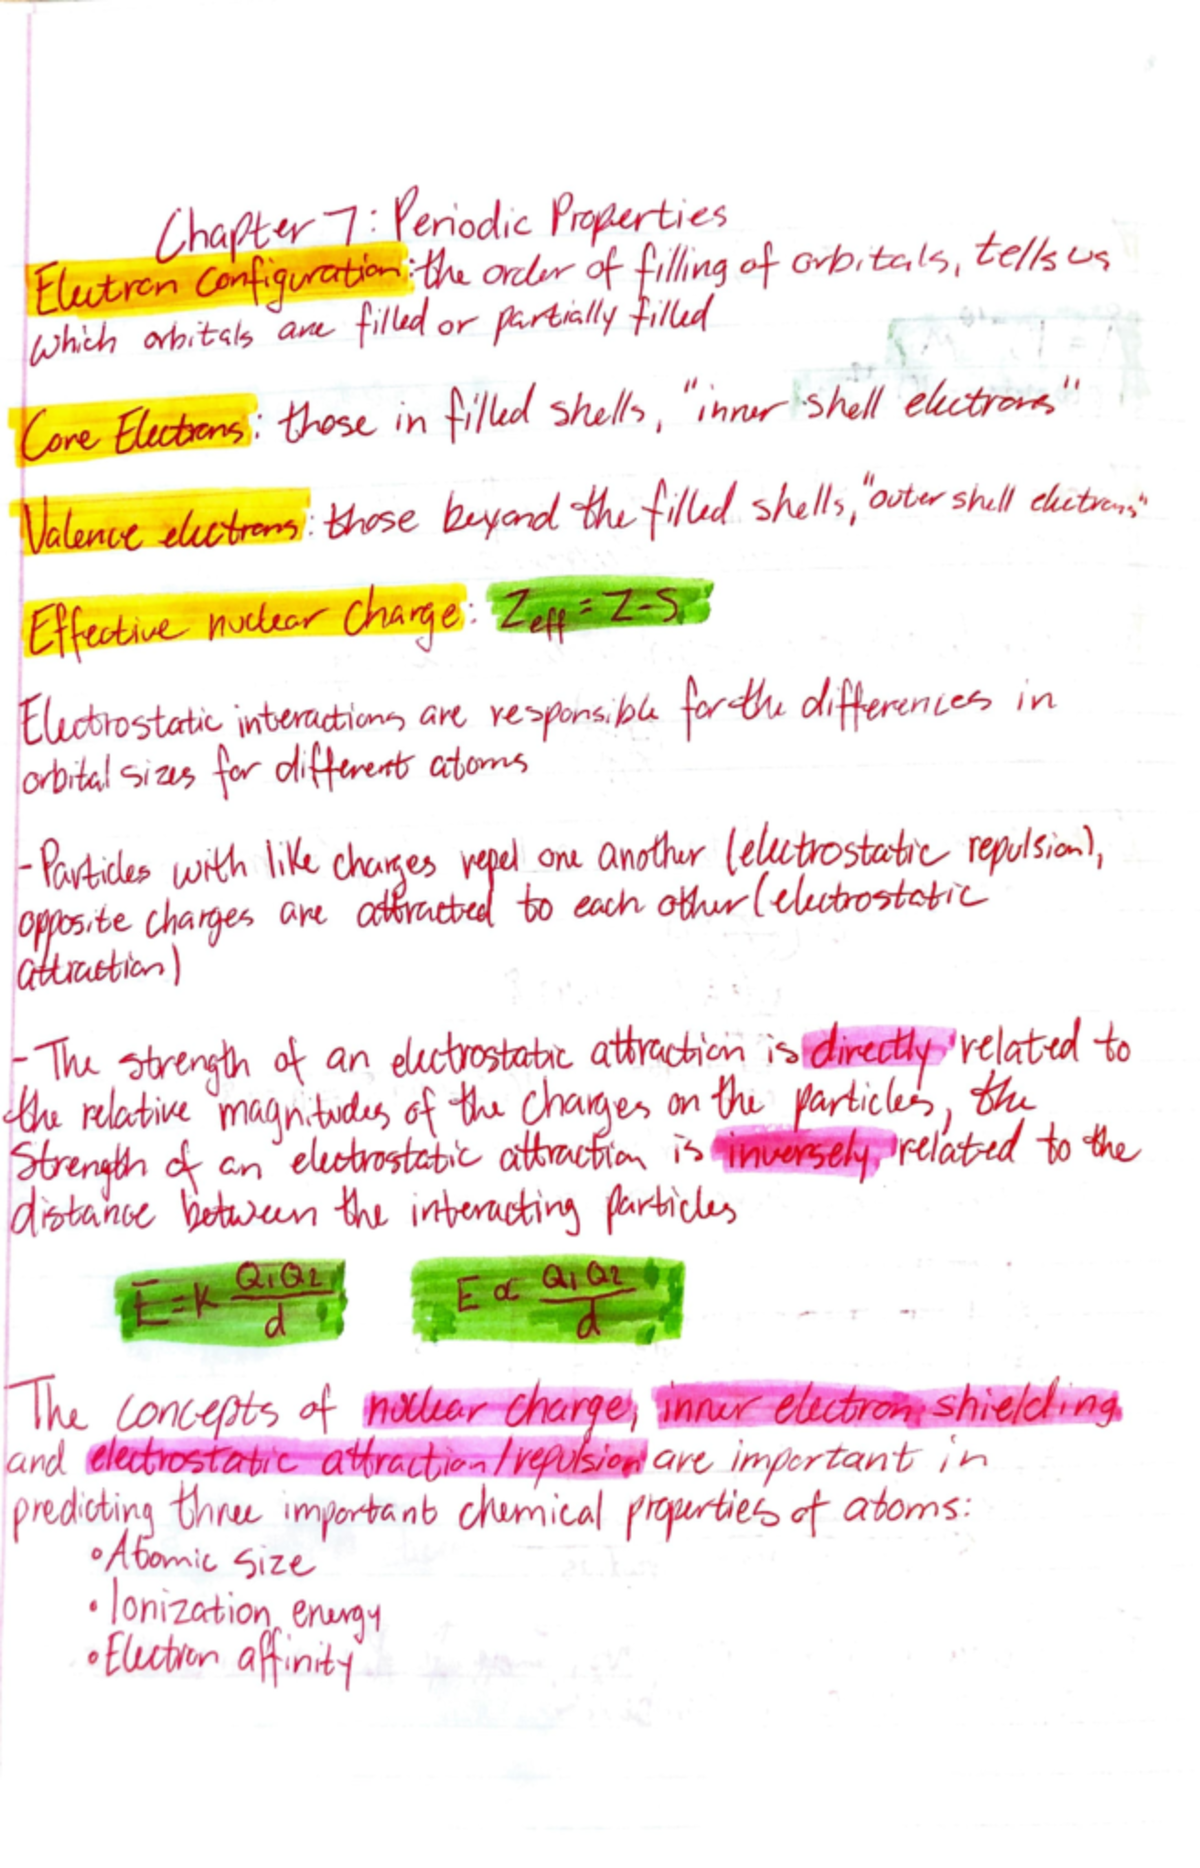 Chapter 7: Periodic Properties
Electron Configuration: the order of filling of orbitals, tells us
which orbitals are filled or partially filled
Core Electrons: those in filled shells, "inner shell electrons"
Valence electrons: those beyond the filled shells, "outer shell electrons"
Effective nuclear charge: Zeff = Z-S
Electrostatic interactions are responsible for the differences in
orbital sizes for different atoms
- Particles with like charges repel one another (electrostatic repulsion),
opposite charges are attracted to each other (electrostatic
attraction)
- The strength of an electrostatic attraction is directly related to
the relative magnitudes of the charges on the particles, the
Strength of an electrostatic attraction is inversely related to the
distance between the interacting particles
E = k Q₁Q₂/d E ∝ Q₁Q₂/d
The concepts of nuclear charge, inner electron shielding
and electrostatic attraction/repulsion are important in
predicting three important chemical properties of atoms:
• Atomic size
• Ionization energy
• Electron affinity